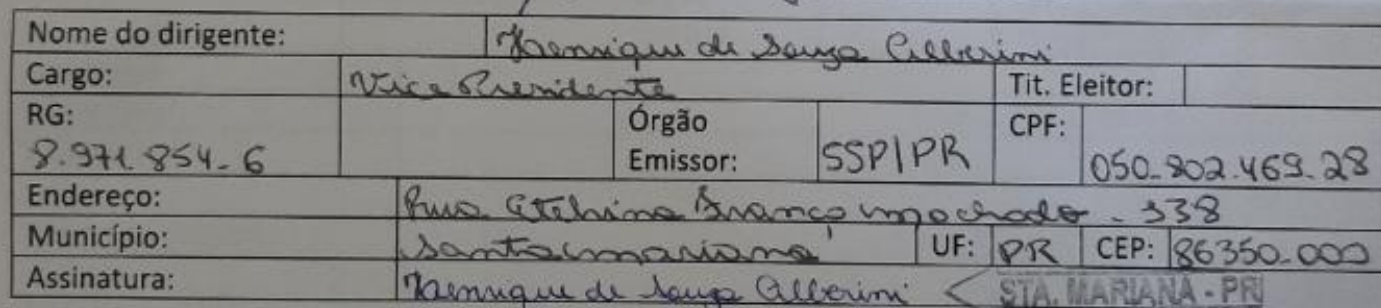 Nome do dirigente: Henrique de Souza Alberini
Cargo: Vice Presidente Tit. Eleitor:
RG: 8.971.854-6 Órgão Emissor: SSP|PR CPF: 050.802.469.28
Endereço: Rua Branco machado - 338
Município: Santa mariana UF: PR CEP: 86350.000
Assinatura: Henrique de Souza Alberini STA. MARIANA - PR